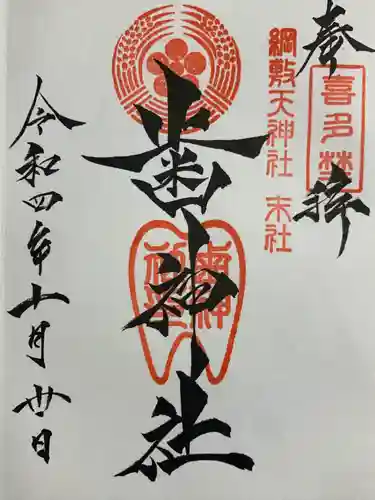 奉拝
喜多埜
綱敷天神社 末社
歯神社
令和四年十月廿日